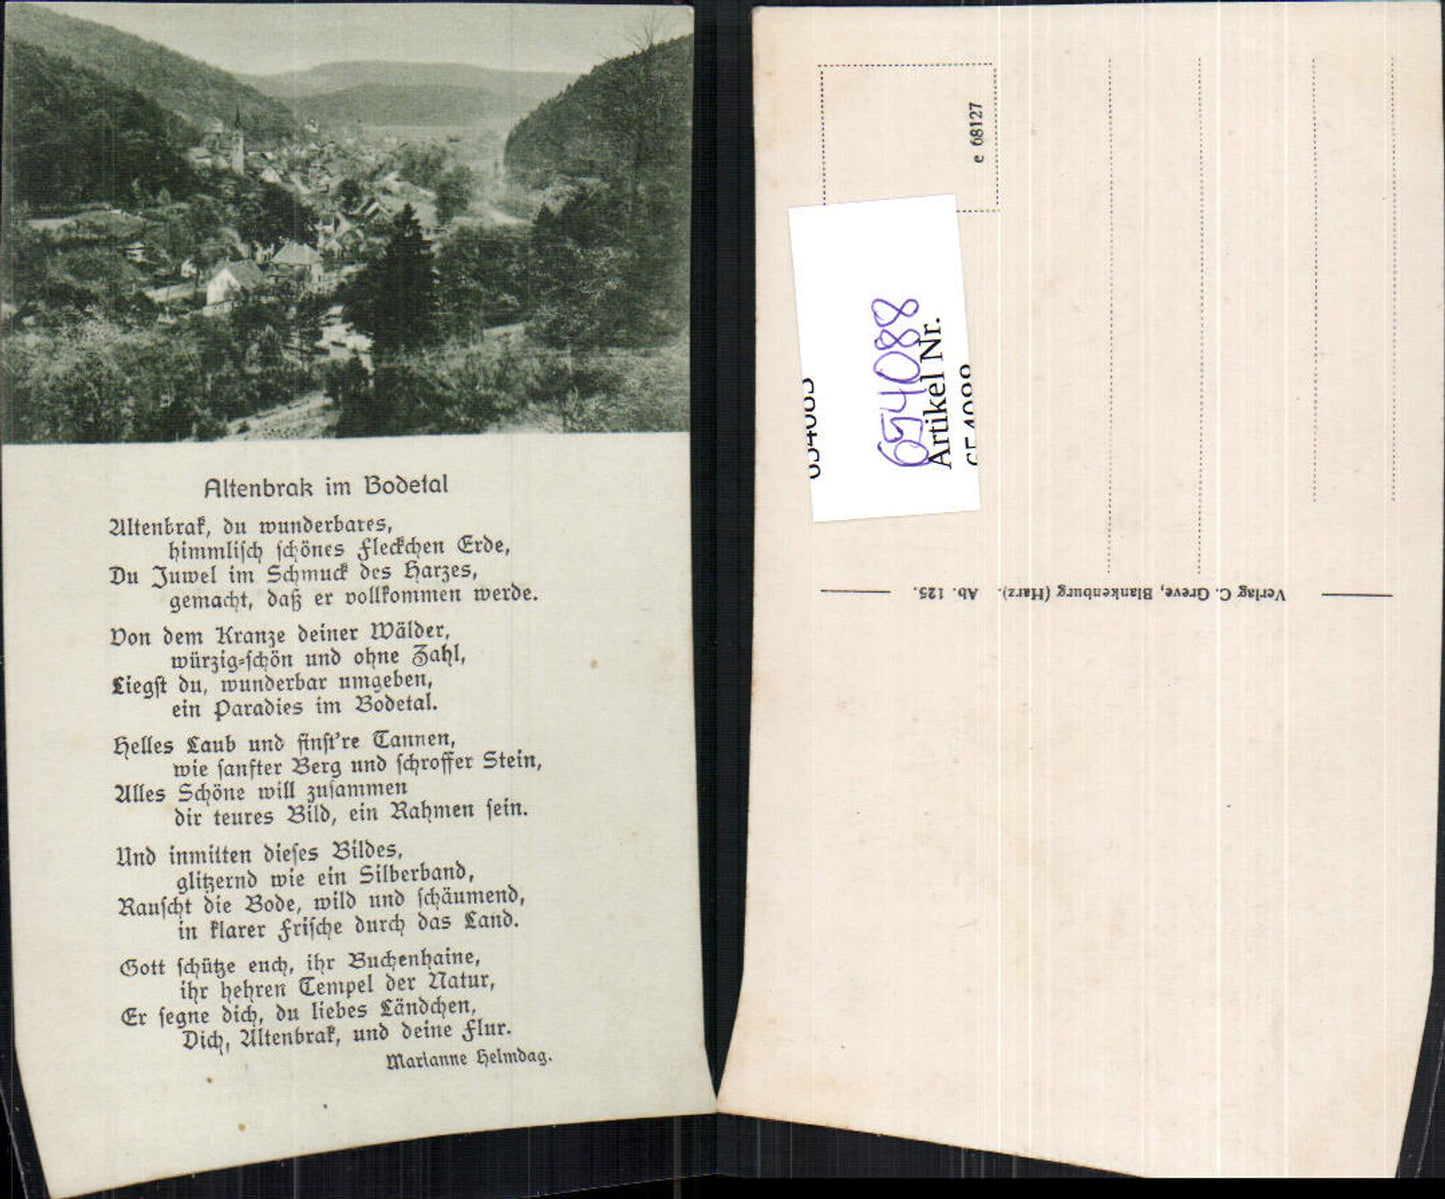 Altenbrak im Bodetal
Altenbrak, du wunderbares,
himmlisch schönes Fleckchen Erde,
Du Juwel im Schmuck des Harzes,
gemacht, daß er vollkommen werde.
Von dem Kranze deiner Wälder,
würzig-schön und ohne Zahl,
Liegst du, wunderbar umgeben,
ein Paradies im Bodetal.
Helles Laub und finst're Tannen,
wie sanfter Berg und schroffer Stein,
Alles Schöne will zusammen
dir teures Bild, ein Rahmen sein.
Und inmitten dieses Bildes,
glitzernd wie ein Silberband,
Rauscht die Bode, wild und schäumend,
in klarer Frische durch das Land.
Gott schütze euch, ihr Buchenhaine,
ihr hehren Tempel der Natur,
Er segne dich, du liebes Ländchen,
Dich, Altenbrak, und deine Flur.
Marianne Helmdag.
e 68127
654088
Artikel Nr.
654088
Verlag C. Greve, Blankenburg (Harz). Ab. 125.